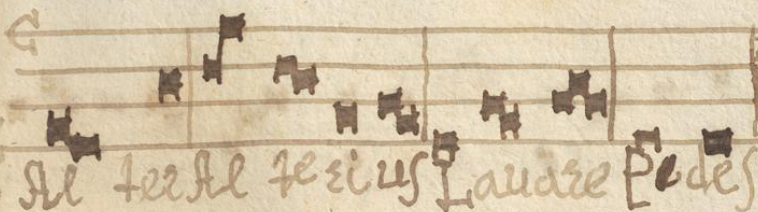 Al ter Al te ri us Lavare Pe des